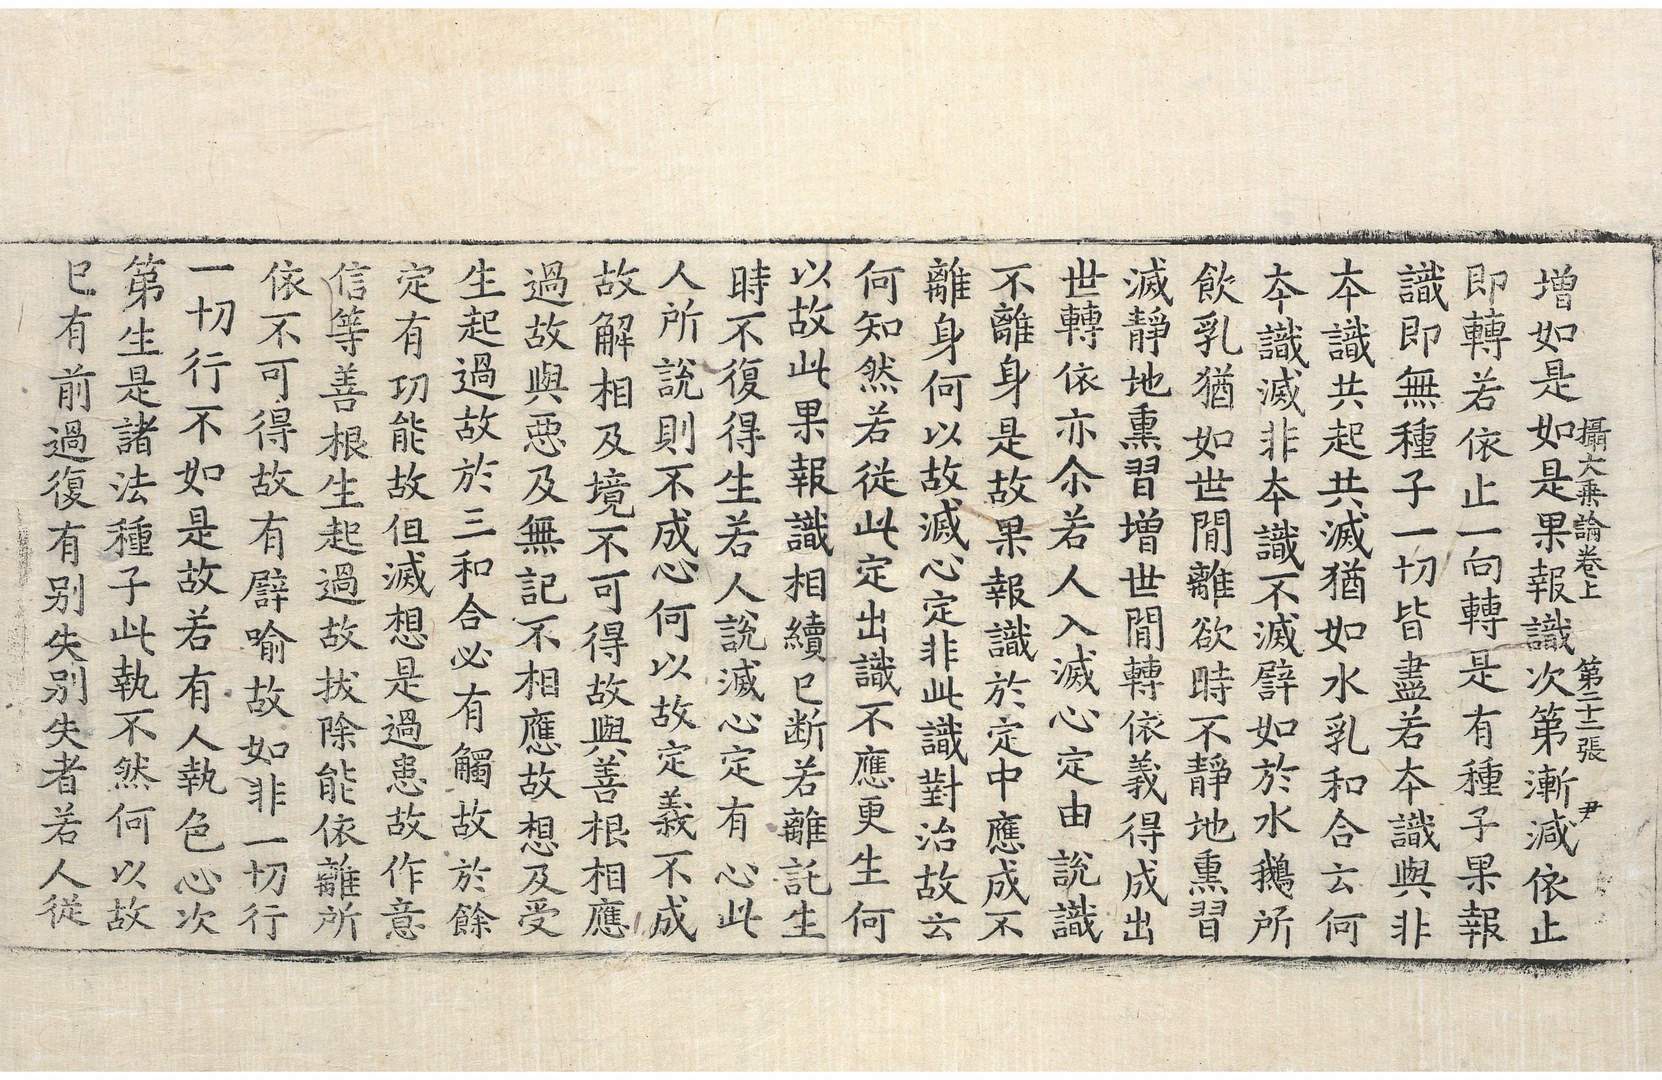 攝大乘論卷上　第二十二張　尹
增如是如是果報識次第漸減依止
即轉若依止一向轉是有種子果報
識即無種子一切皆盡若夲識與非
夲識共起共滅猶如水乳和合云何
夲識滅非夲識不滅譬如於水鵝所
飲乳猶如世閒離欲時不靜地熏習
滅靜地熏習增世閒轉依義得成出
世轉依亦尒若人入滅心定由說識
不離身是故果報識於定中應成不
離身何以故滅心定非此識對治故云
何知然若從此定出識不應更生何
以故此果報識相續已断若離託生
時不復得生若人說滅心定有心此
人所說則不成心何以故定義不成
故解相及境不可得故與善根相應
過故與惡及無記不相應故想及受
生起過故於三和合必有觸故於餘
定有功能故但滅想是過患故作意
信等善根生起過故拔除能依離所
依不可得故有譬喻故如非一切行
一切行不如是故若有人執色心次
第生是諸法種子此執不然何以故
已有前過復有别失别失者若人從